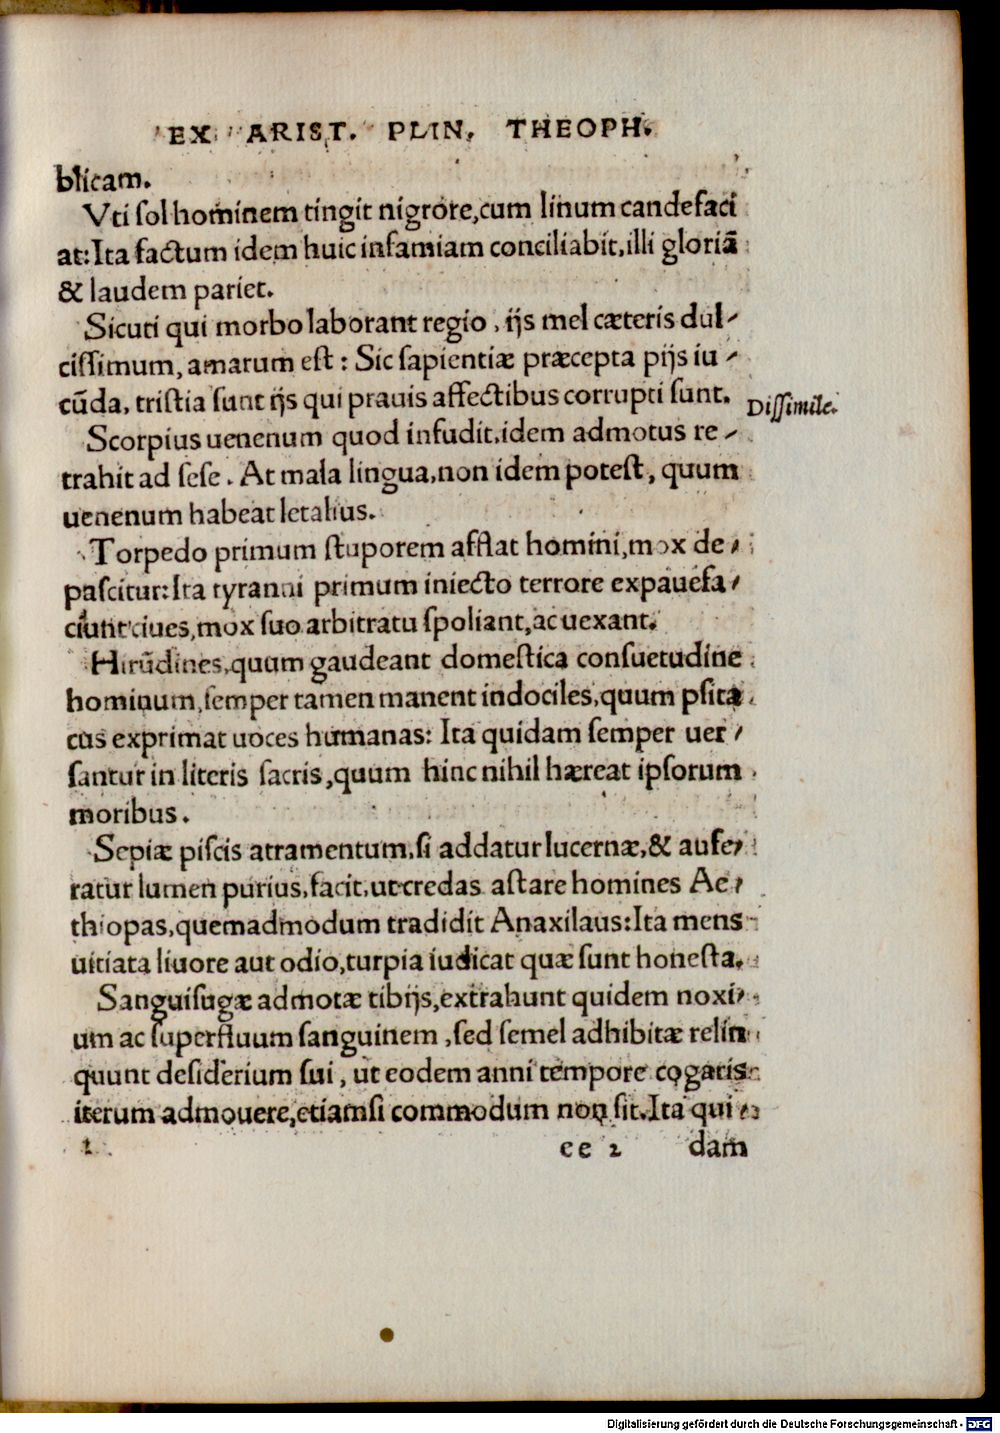 EX ARIST. PLIN. THEOPH.
blicam.
Vti sol hominem tingit nigrore,cum linum candefaci
at:Ita factum idem huic infamiam conciliabit,illi gloriā
& laudem pariet.
Sicuti qui morbo laborant regio, ijs mel cæteris dul-
cissimum, amarum est: Sic sapientiæ præcepta pijs iu-
cūda, tristia sunt ijs qui prauis affectibus corrupti sunt.
Dissimile.
Scorpius uenenum quod infudit,idem admotus re-
trahit ad sese. At mala lingua,non idem potest, quum
uenenum habeat letalius.
Torpedo primum stuporem afflat homini,mox de-
pascitur:Ita tyranni primum iniecto terrore expauefa-
ciunt ciues,mox suo arbitratu spoliant,ac uexant.
Hirūdines,quum gaudeant domestica consuetudine
hominum,semper tamen manent indociles,quum psita
cus exprimat uoces humanas: Ita quidam semper uer-
santur in literis sacris,quum hinc nihil hæreat ipsorum
moribus.
Sepiæ piscis atramentum,si addatur lucernæ,& aufe-
ratur lumen purius,facit,ut credas astare homines Ae-
thiopas,quemadmodum tradidit Anaxilaus:Ita mens
uitiata liuore aut odio,turpia iudicat quæ sunt honesta.
Sanguisugæ admotæ tibijs,extrahunt quidem noxi-
um ac superfluum sanguinem ,sed semel adhibitæ relin
quunt desiderium sui, ut eodem anni tempore cogaris
iterum admouere,etiamsi commodum non sit.Ita qui-
ee 2 dam
Digitalisierung gefördert durch die Deutsche Forschungsgemeinschaft - DFG